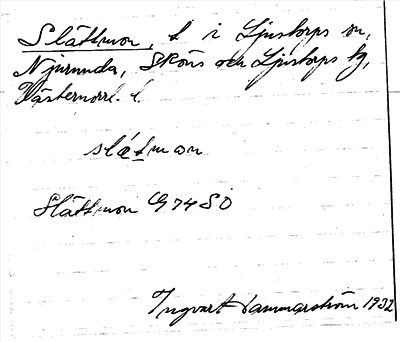 Slättmon, t i Ljustorps sn,
Njurunda, Sköns och Ljustorps tg,
Västernorrl. l.
slátmon
Slättmon G74SO
Ingvart Hammarström 1932